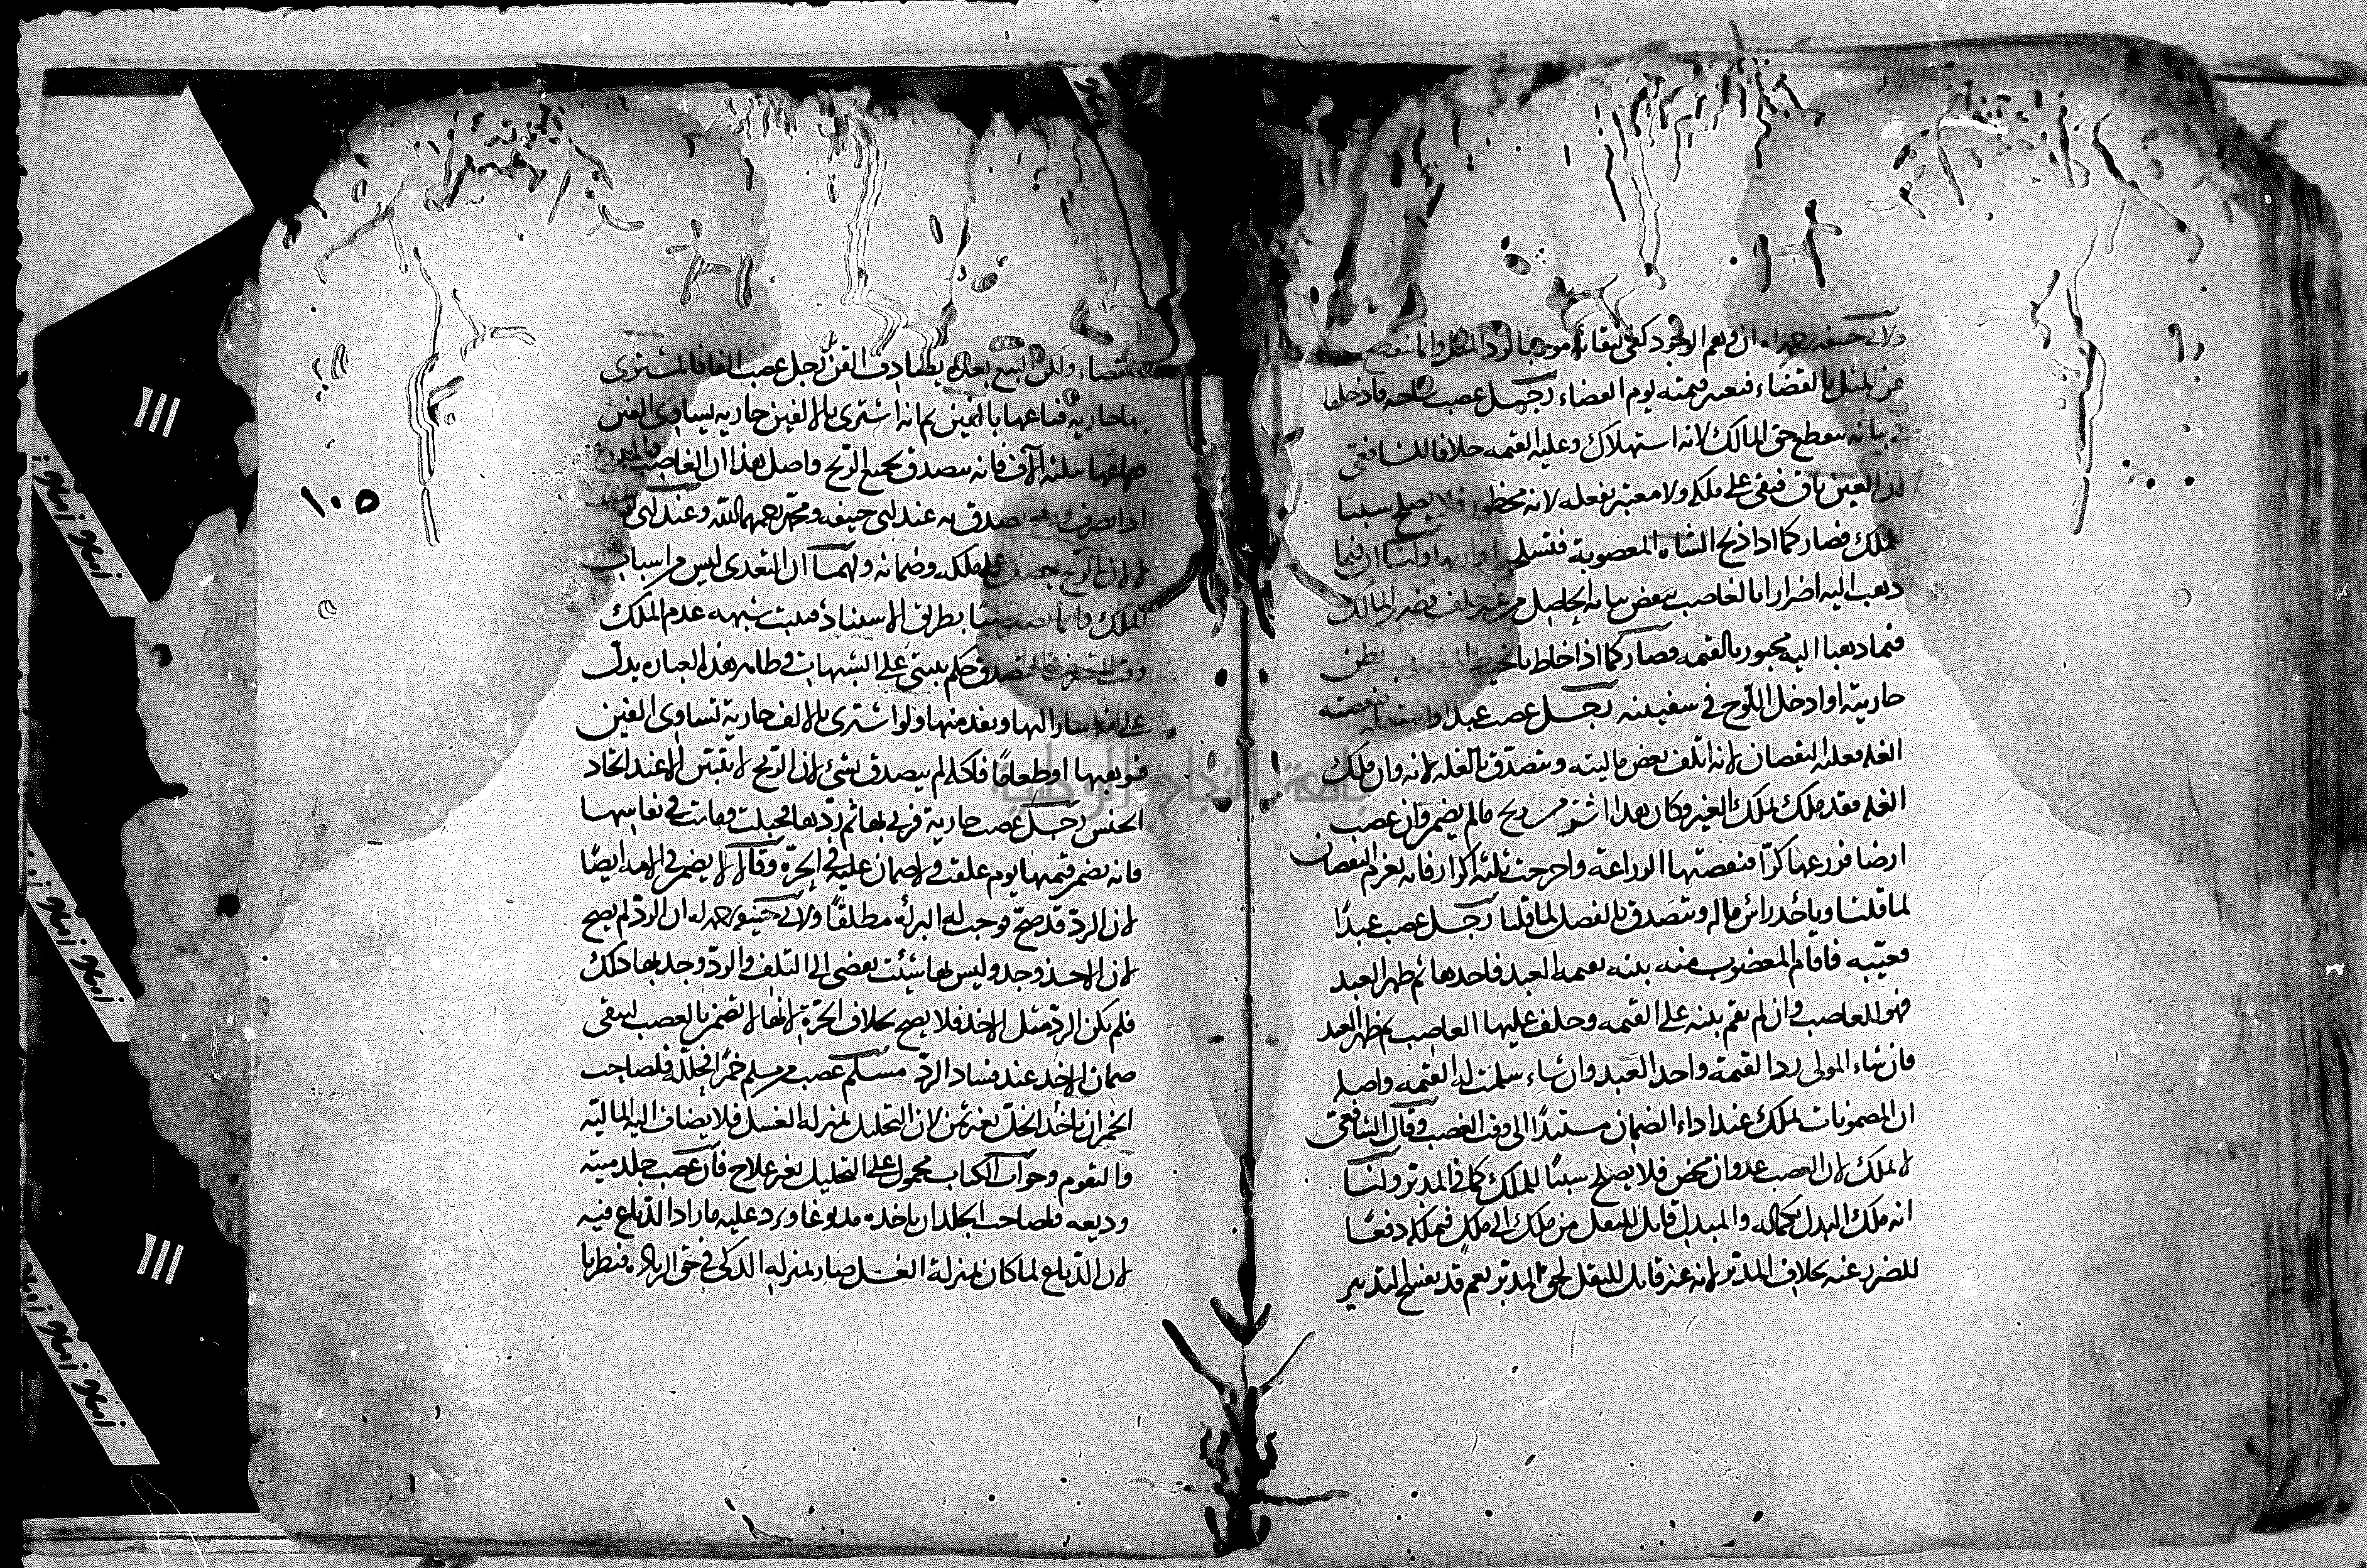 ولابي حنيفه رحمه الله ان وهم الوجود كفى لبقائه موجبا لرد المثل وانما ينقطع
عن المثل بالقضاء فتعتبر قيمته يوم القضاء رجل غصب ساحه فادخلها
في بنائه ينقطع حق المالك لانه استهلاك وعليه القيمه خلافا للشافعي
لان العين باق فبقي على ملكه ولا معتبر بفعله لانه محظور فلا يصلح سببا
للملك فصار كما اذا ذبح الشاه المغصوبة فسلخها واربها ولنا ان فيما
ذهب اليه اضرارا بالغاصب بنقض بنائه الحاصل من غير خلف وضرر المالك
فيما ذهبنا اليه مجبور بالقيمه فصار كما اذا خاط بالخيط المغصوب بطن
جاريته او ادخل اللوح في سفينته رجل غصب عبدا واستغله فنقصته
الغله فعليه النقصان لانه اتلف بعض ماليته ويتصدق بالغله لانه وان ملك
الغله فقد ملك بملك الغير وكان هذا ربح ما لم يضمن وان غصب
ارضا فزرعها كرا فنقصتها الزراعة واخرجت ثلثه اكرار فانه يغرم النقصان
لما قلنا وياخذ راس ماله ويتصدق بالفضل لما قلنا رجل غصب عبدا
فغيبه فاقام المغصوب منه بينه بقيمه العبد فاخذها ثم ظهر العبد
فهو للغاصب وان لم يقم بينه على القيمه وحلف عليها الغاصب ثم ظهر العبد
فان شاء المولى رد القيمة واخذ العبد وان شاء سلمت له القيمه واصله
ان المضمونات تملك عند اداء الضمان مستندا الى وقت الغصب وقال الشافعي
لا تملك لان الغصب عدوان محض فلا يصلح سببا للملك كما في المدبر ولنا
انه ملك البدل بكماله والمبدل قابل للنقل من ملك الى ملك فيملكه دفعا
للضرر عنه بخلاف المدبر لانه غير قابل للنقل لحق المدبر نعم قد يفسخ التدبير
١٠٥
بالقضاء ولكن البيع بعده يصادف القن رجل غصب الفا فاشترى
بها جاريه فباعها بالفين ثم انه اشترى بالالفين جاريه يساوى الفين
فباعها بثلثه الآف فانه يتصدق بجميع الربح واصل هذا ان الغاصب والمودع
اذا تصرف وربح يتصدق به عند ابي حنيفه ومحمد رحمهما الله وعند ابي
لا لان الربح حصل على ملكه وضمانه ولهما ان التعدى ليس من اسباب
الملك وانما يصير سببا بطريق الاستناد فيثبت شبهه عدم الملك
وقت التصرف والتصدق حكم يبتنى على الشبهات في ظاهر هذه العباره يدل
على انه اشار اليها ونقد منها ولو اشترى بالالف جارية تساوى الفين
فوهبها او طعاما فاكله لم يتصدق بشئ لان الربح لا يتبين الا عند اتحاد
الجنس رجل غصب جارية فزنى بها ثم ردها فحبلت وماتت في نفاسها
فانه يضمن قيمتها يوم علقت ولا ضمان عليه في الحرة وقالا لا يضمن في الامه ايضا
لان الرد قد صح فوجب له البراه مطلقا ولابي حنيفه رحمه الله ان الرد لم يصح
لان الاخذ وجد وليس بها شئ يفضى الى التلف والرد وجد بها ذلك
فلم يكن الرد مثل الاخذ فلا يصح بخلاف الحرة لانها لا تضمن بالغصب ليبقى
ضمان الاخذ عند فساد الرد مسلم غصب من مسلم خمرا فخللها فلصاحب
الخمر ان ياخذ الخل بغير ثمن لان التخليل بمنزله الغسل فلا يضاف اليه الماليه
والتقوم وجواب الكتاب محمول على التخليل بغير علاج فان غصب جلد ميته
ودبغه فلصاحب الجلد ان ياخذه مدبوغا ويرد عليه ما زاد الدباغ فيه
لان الدباغ لما كان بمنزلة الغسل صار بمنزله الذكى في حق الزياده فنظرنا
جامعة النجاح الوطنية